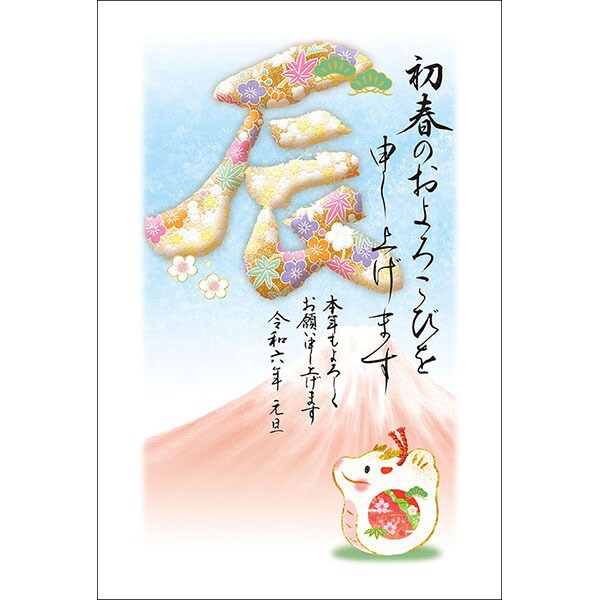 初春のおよろこびを
申し上げます
辰
本年もよろしく
お願い申し上げます
令和六年 元旦